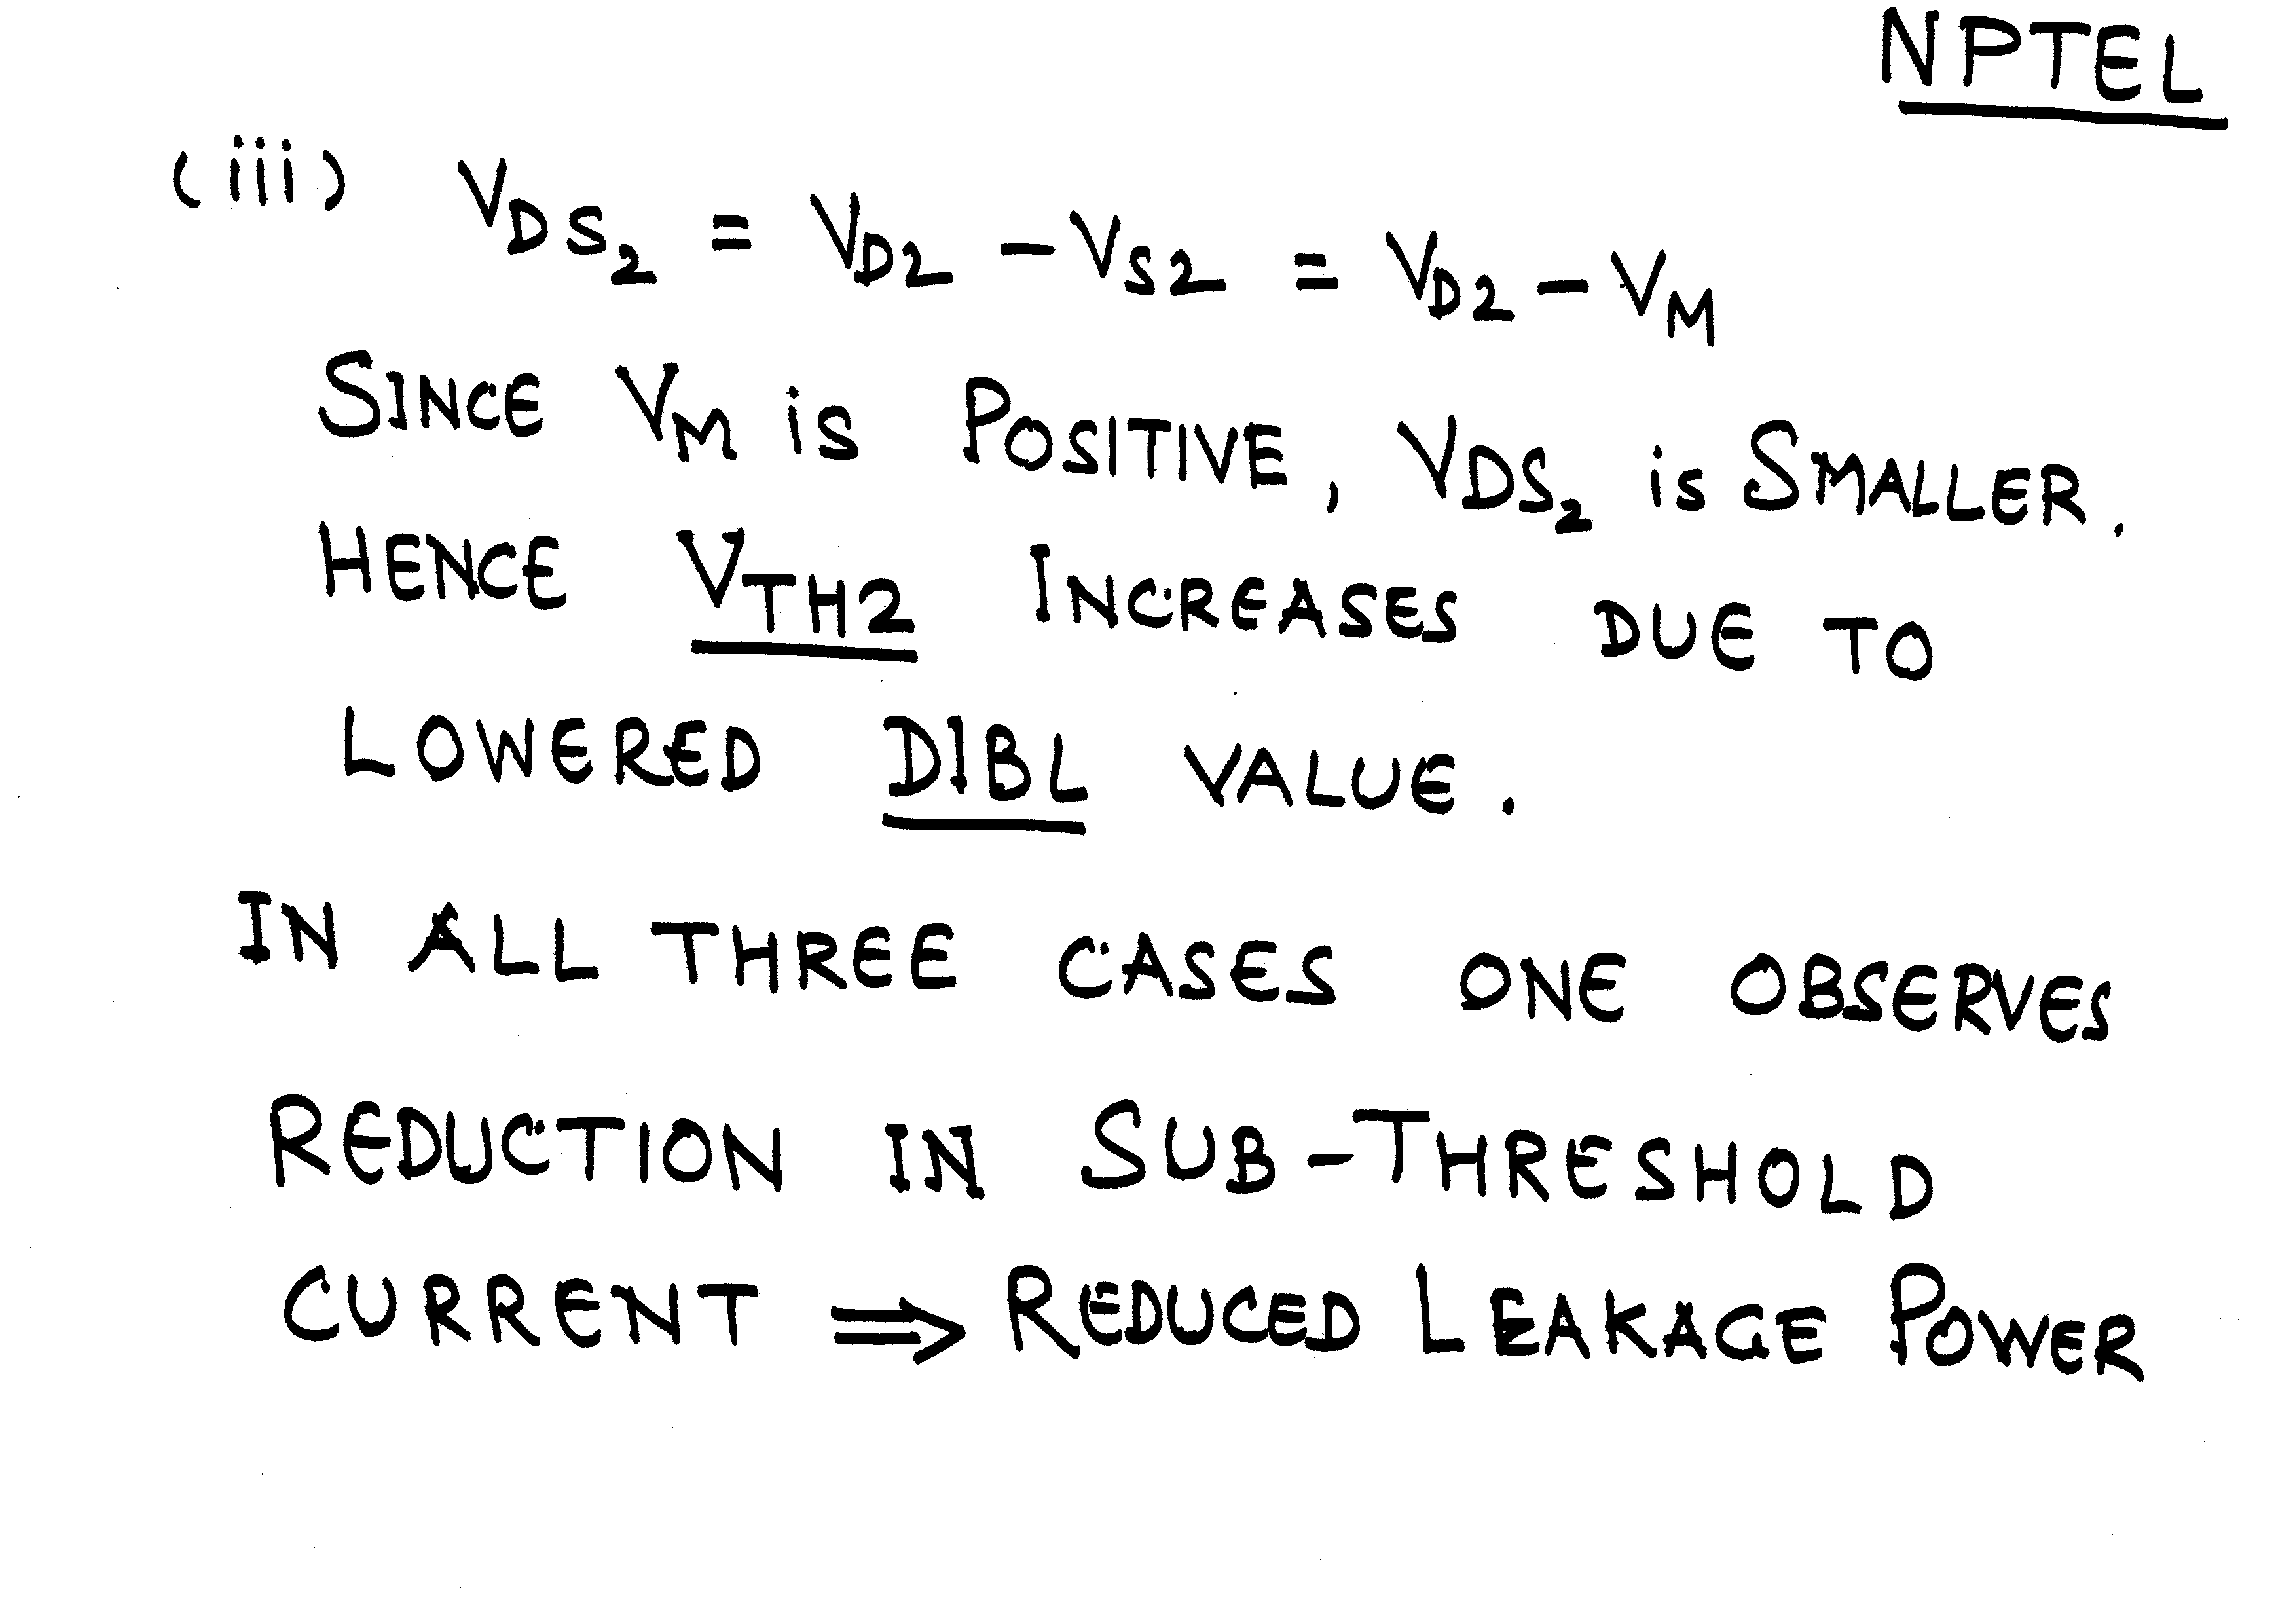 NPTEL
(iii) VDS2 = VD2 - VS2 = VD2 - VM
SINCE VM is POSITIVE, VDS2 is SMALLER.
HENCE VTH2 INCREASES DUE TO
LOWERED DIBL VALUE.
IN ALL THREE CASES ONE OBSERVES
REDUCTION IN SUB-THRESHOLD
CURRENT ⇒ REDUCED LEAKAGE POWER